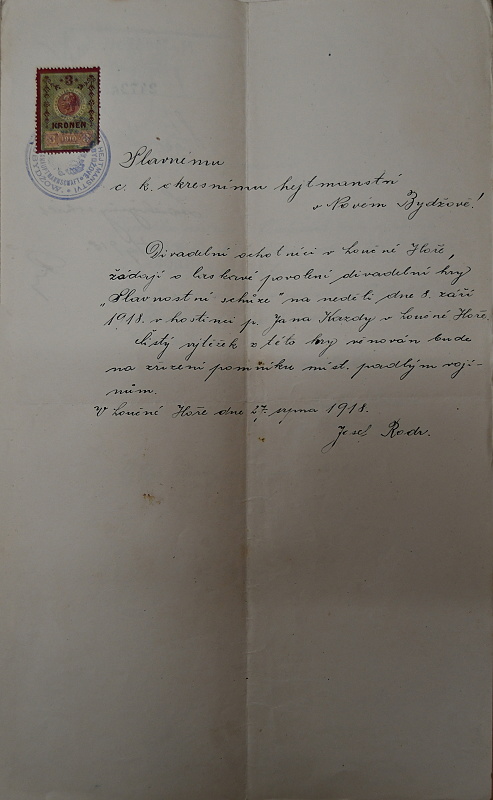 3
KRONEN
1910
HEJTMANSTVÍ
Slavnému
c. k. okresnímu hejtmanství
v Novém Bydžově!
Divadelní ochotníci v Loučné Hoře,
žádají o laskavé povolení divadelní hry
„Slavnostní schůze" na neděli, dne 8. září
1918. v hostinci p. Jana Kazdy v Loučné Hoře.
Čistý výtěžek z této hry věnován bude
na zřízení pomníku míst. padlým vojí-
nům.
V Loučné Hoře dne 27. srpna 1918.
Josef